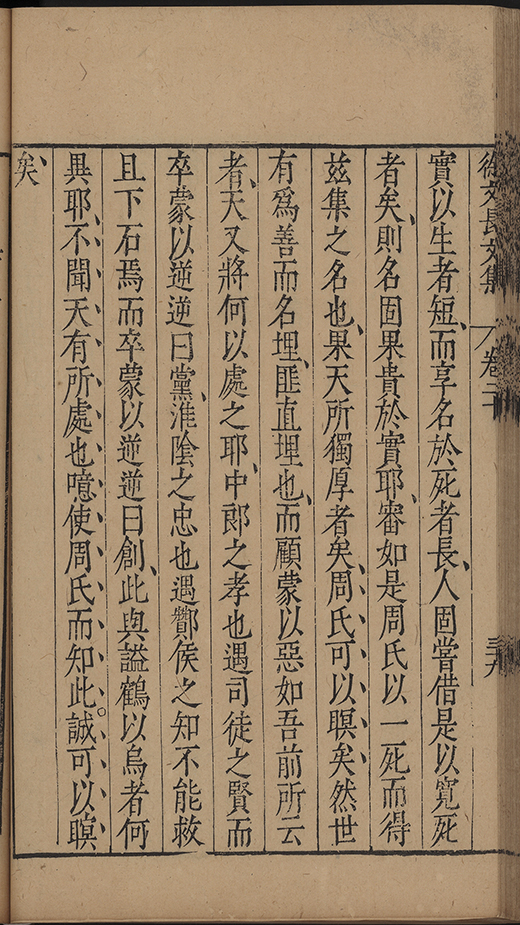 徐文長文集 卷二十 三十九
實以生者短、而享名於死者長、人固嘗借是以寬死
者矣、則名固果貴於實耶、審如是周氏以一死而得
茲集之名也、果天所獨厚者矣、周氏可以瞑矣、然世
有爲善而名埋、匪直埋也、而顧蒙以惡如吾前所云
者、天又將何以處之耶、中郎之孝也遇司徒之賢而
卒蒙以逆逆曰黨、淮陰之忠也遇酇侯之知不能救
且下石焉而卒蒙以逆逆曰創、此與謚鶴以烏者何
異耶、不聞天有所處也噫使周氏而知此。誠可以瞑
矣、